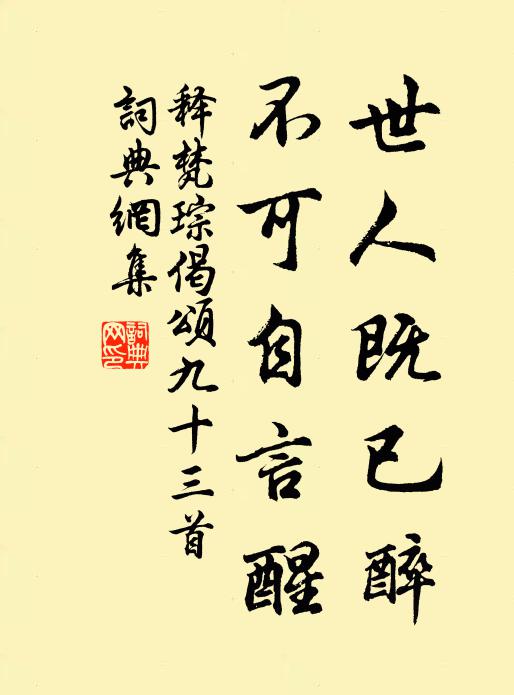 世人既已醉
不可自言醒
释梵琮偈颂九十三首
詞典網集
詞典網印